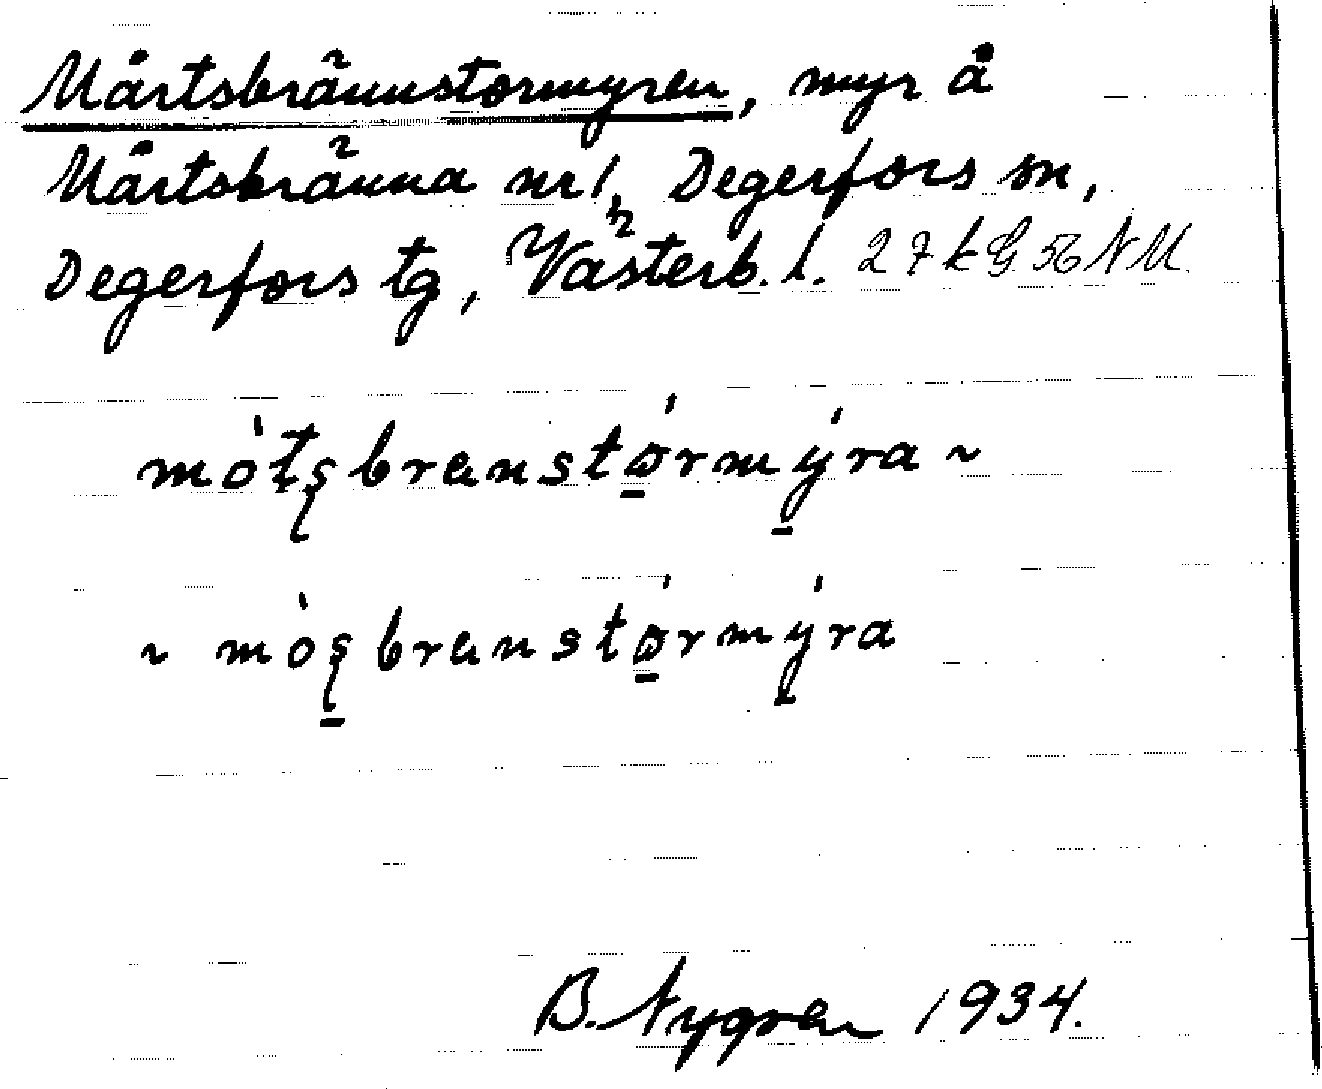 Mårtsbrännstormyren, myr å
Mårtsbränna nr 1, Degerfors sn,
Degerfors tg, Västerb. l. 27 k G 56 NM
mò̱ṭṣbranstǿ̱rmý̱ra ~
~ mòṣ̱branstǿ̱rmý̱ra
B. Nygren 1934.